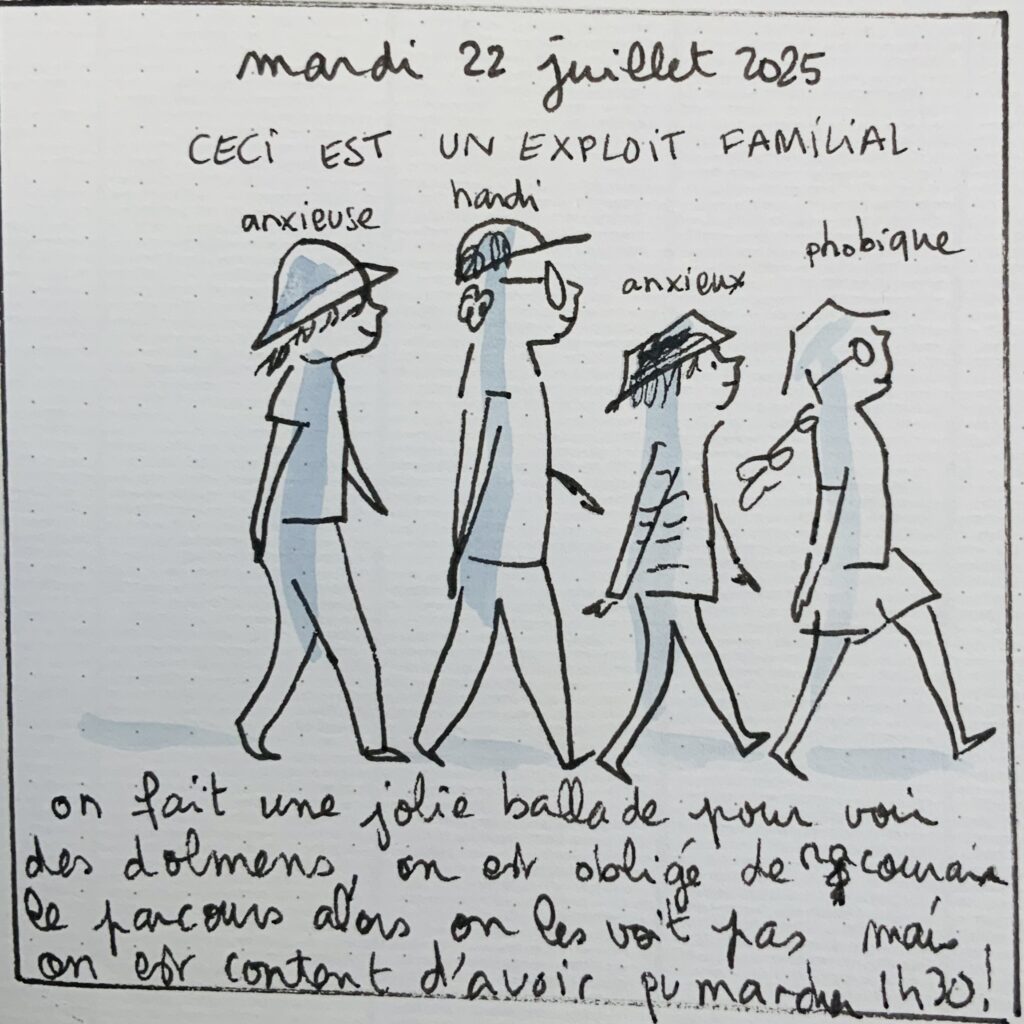 mardi 22 juillet 2025
CECI EST UN EXPLOIT FAMILIAL
anxieuse
handi
anxieux
phobique
on fait une jolie ballade pour voir
des dolmens, on est obligé de
le parcours alors on les voit pas mais
on est content d'avoir pu marcher 1h30!